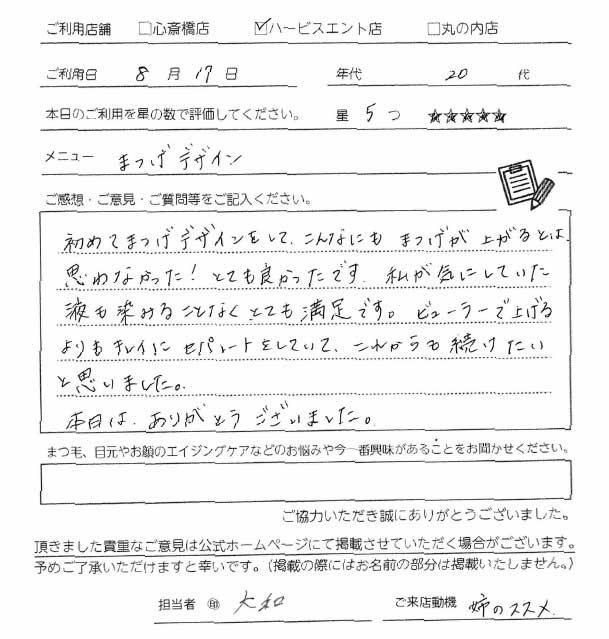 ご利用店舗 □心斎橋店 ☑ハービスエント店 □丸の内店
ご利用日 8 月 17 日 年代 20 代
本日のご利用を星の数で評価してください。 星 5 つ ★★★★★
メニュー まつげデザイン
ご感想・ご意見・ご質問等をご記入ください。
初めてまつげデザインをして、こんなにも まつげが 上がるとは
思わなかった！とても良かったです。私が気にしていた
液も染みることなくとても満足です。ビューラーで上げる
よりもキレイに セパレートをしていて、これからも続けたい
と思いました。
本日は、ありがとうございました。
まつ毛、目元やお顔のエイジングケアなどのお悩みや今一番興味があることをお聞かせください。
ご協力いただき誠にありがとうございました。
頂きました貴重なご意見は公式ホームページにて掲載させていただく場合がございます。
予めご了承いただけますと幸いです。（掲載の際にはお名前の部分は掲載いたしません。）
担当者 ㊞ 大和 ご来店動機 姉のススメ